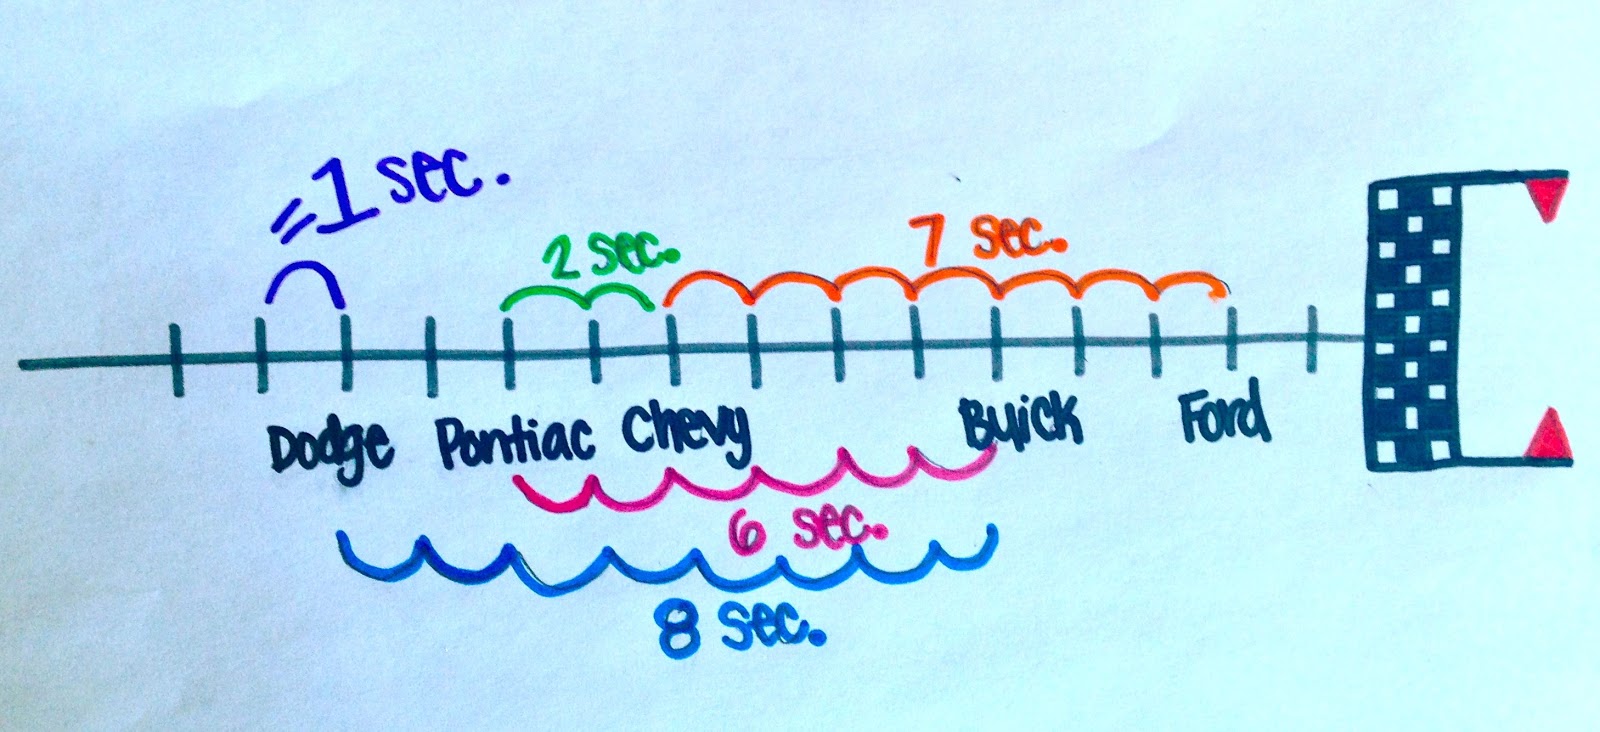 =1 sec.
2 sec.
7 sec.
Dodge Pontiac Chevy Buick Ford
6 sec.
8 sec.